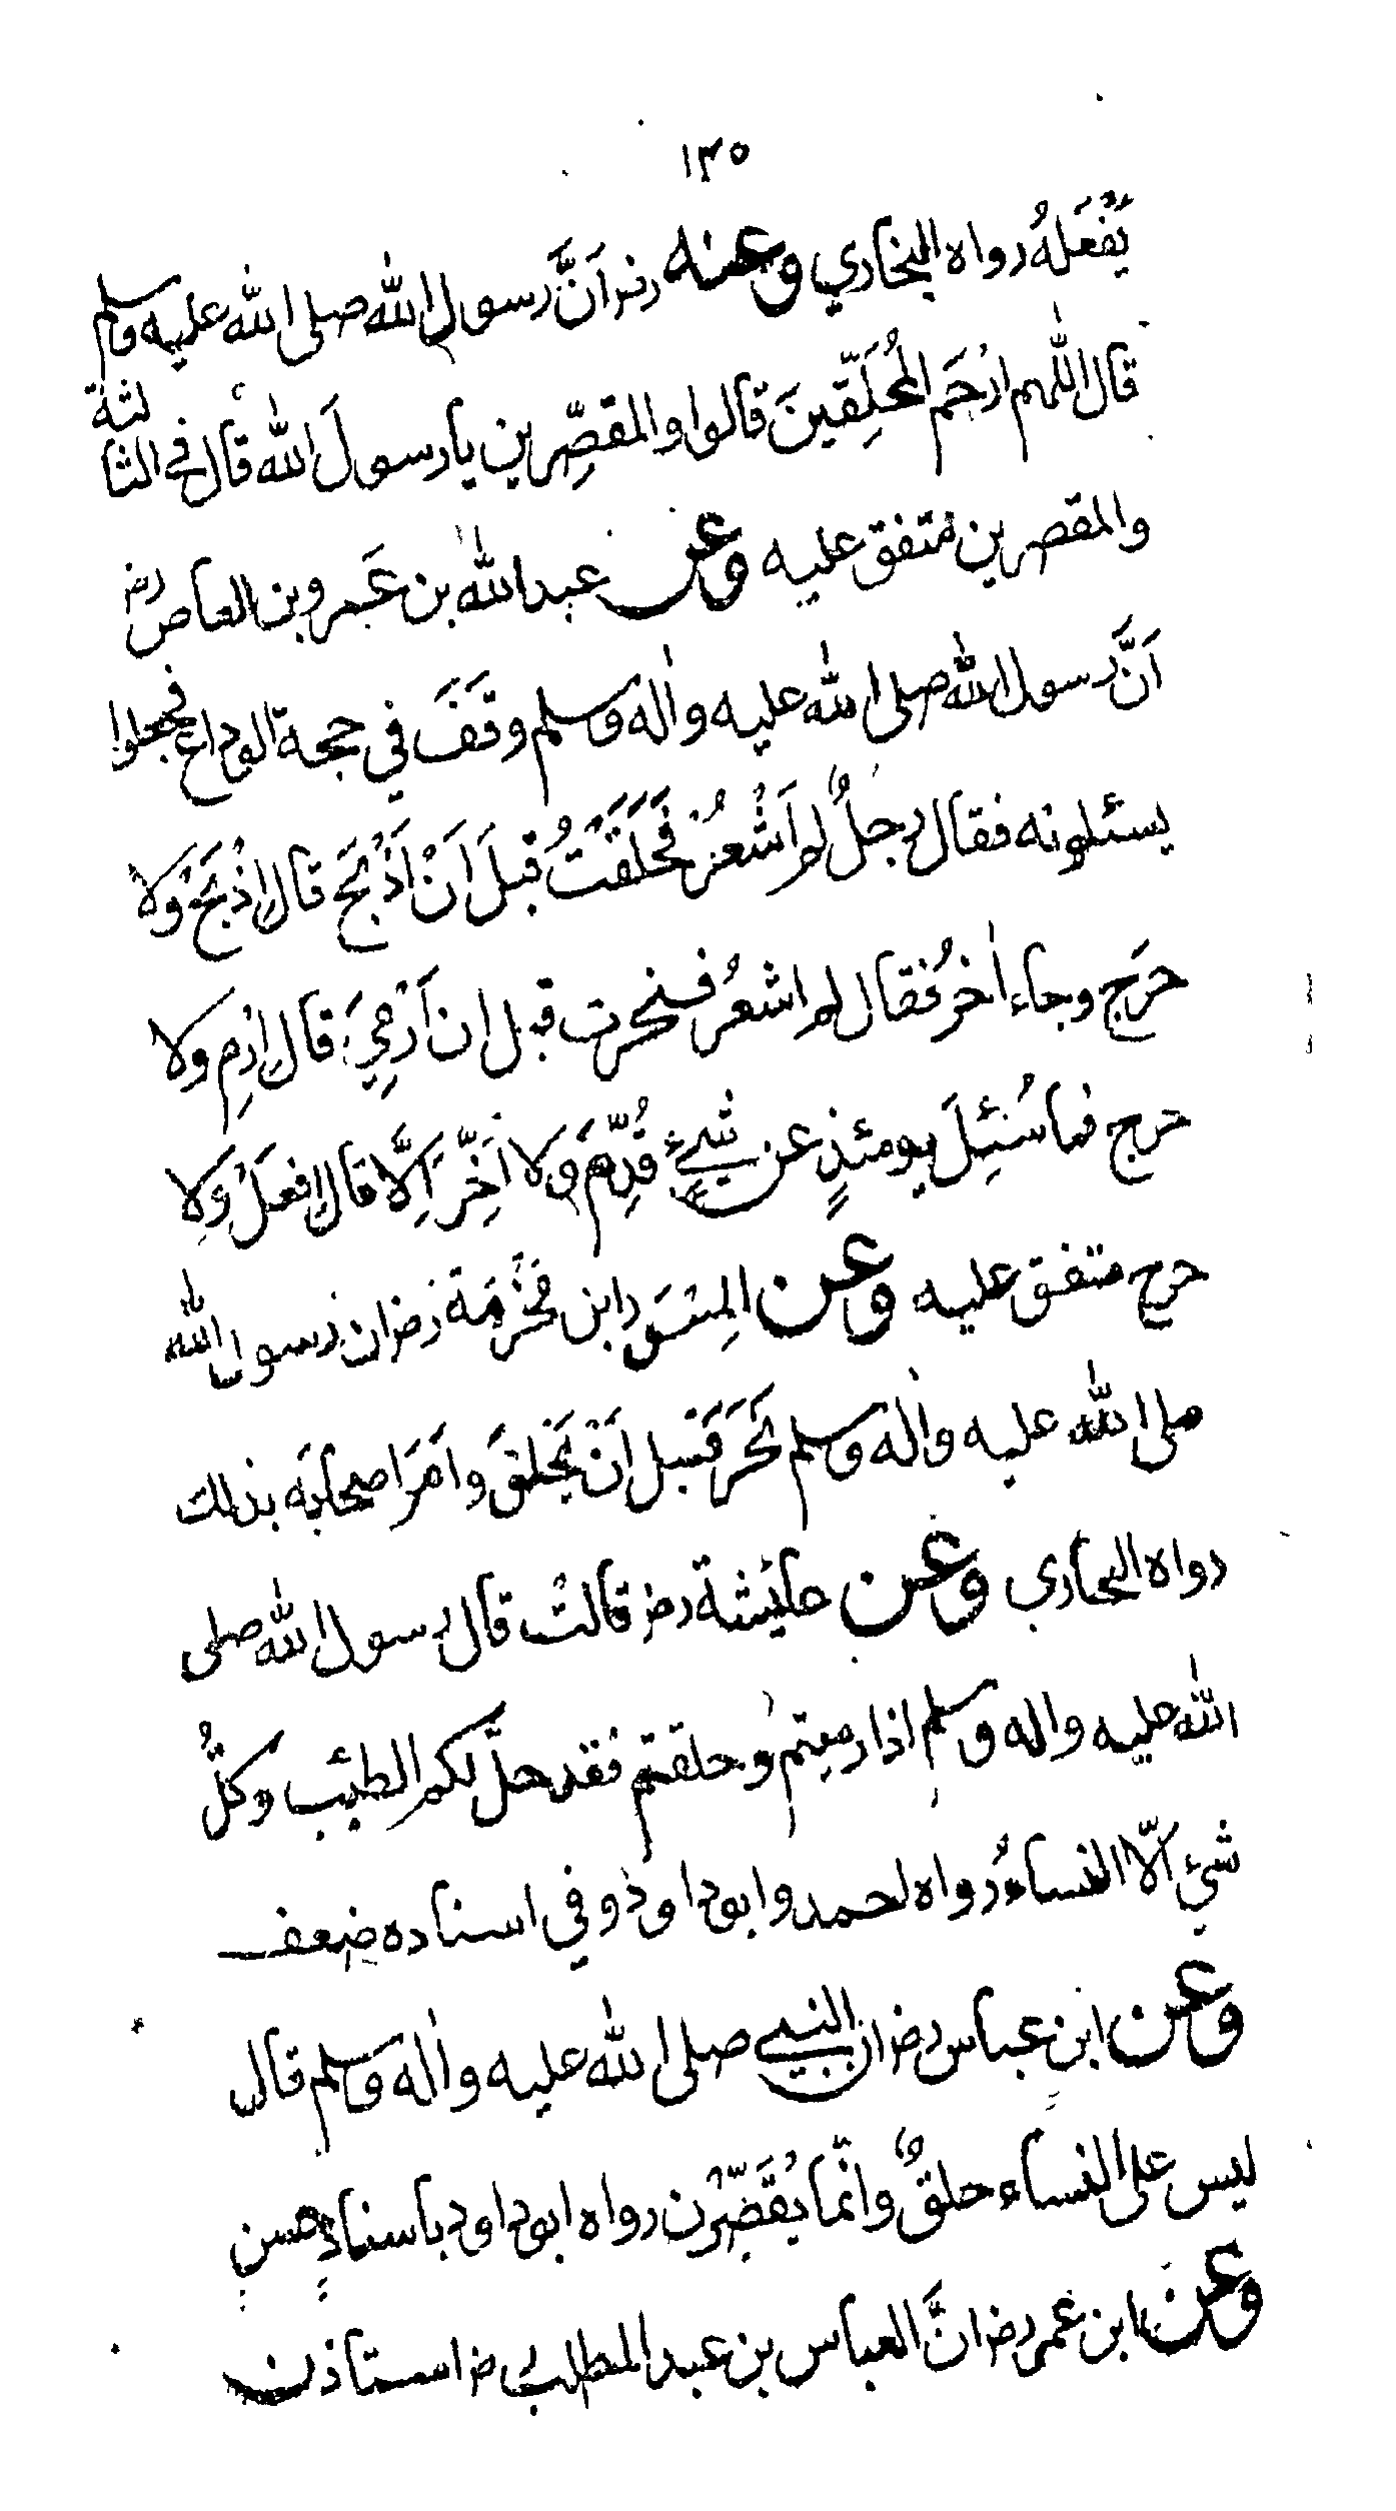 ١٣٥
يَفْعَلُهُ رواه البخاري وعنه رض اَنَّ رسول الله صلى الله عليه وسلم
قال اللهم ارْحَم المُحَلِّقينَ قالوا والمقصِّرين يا رسولَ الله قال في الثالثة
والمقصرين متفق عليه وعن عبد الله بن عَمرو بن العاص رض
اَنَّ رسول الله صلى الله عليه واله وسلم وقَفَ في حجة الوداع فجعلوا
يسئلونه فقال رجلٌ لم اَشْعُرْ فَحَلَقْتُ قبلَ اَنْ اَذْبَحَ قال اذْبَحْ وَلا
حَرَج وجاء اٰخرُ فقال لم اشعُر فنحرت قبل ان اَرْمِيَ قال ارْمِ ولا
حرج فما سُئِلَ يومئذٍ عن شيءٍ قُدِّمَ ولا اُخِّرَ اِلَّا قال افعَلْ وَلا
حرج متفق عليه وعن المِسْوَر ابن مَخْرَمَة رض ان رسول الله
صلى الله عليه واٰله وسلم نَحَرَ قبل اَنْ يَحْلقَ واَمَرَ اصحابَه بذلك
رواه البخاري وعن عايشة رض قالت قال رسول الله صلى
الله عليه واله وسلم اذا رميتم وحلقتم فقد حلَّ لكم الطيب وكلُّ
شيء الّا النساءُ رواه احمد وابوداود وفي اسناده ضعف
وعن ابنِ عباس رض ان النبي صلى الله عليه واٰله وسلم قال
ليس على النساء حلقٌ وانّما يُقَصِّرْن رواه ابوداود باسنادٍ حسنٍ
وعن ابن عمر رض انَّ العباس بن عبد المطلب رض استاذن